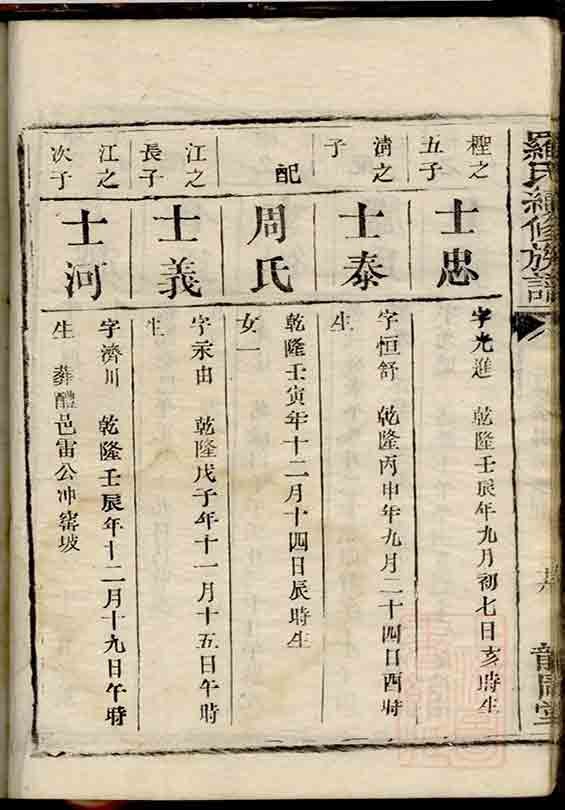 羅氏續修族譜
樫之
五子
士忠
字光進 乾隆壬辰年九月初七日亥時生
淸之
子
士泰
字恒舒 乾隆丙申年九月二十四日酉時
生
配
周氏
乾隆壬寅年十二月十四日辰時生
女一
江之
長子
士義
字永由 乾隆戊子年十一月十五日午時
生
江之
次子
士河
字濟川 乾隆壬辰年十二月十九日午時
生 葬醴邑雷公冲窑坡